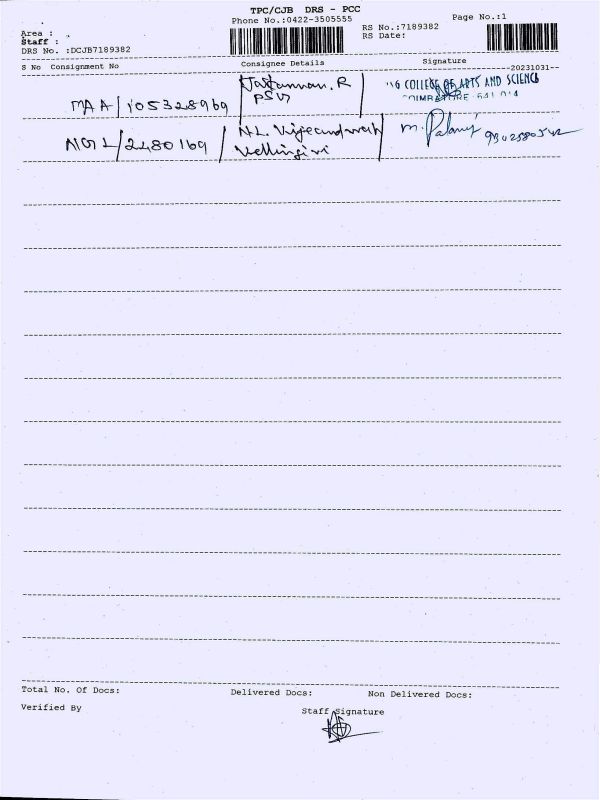 TPC/CJB DRS - PCC
Phone No.:0422-3505555
Page No.:1
RS No.:7189382
RS Date:
Area :
Staff :
DRS No. :DCJB7189382
S No Consignment No Consignee Details Signature
--20231031--
MAA/105328969 R
COLLEGE OF ARTS AND SCIENCE
641 014
/2480169
M. Palani
Total No. Of Docs: Delivered Docs: Non Delivered Docs:
Verified By Staff Signature